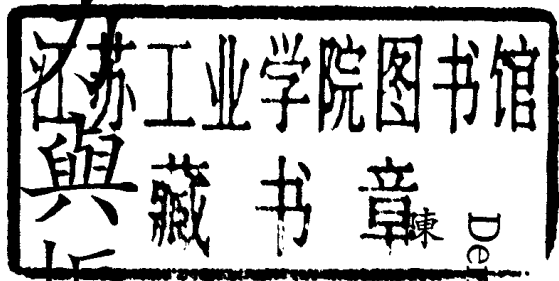 江苏工业学院图书馆
藏书章
與
陳